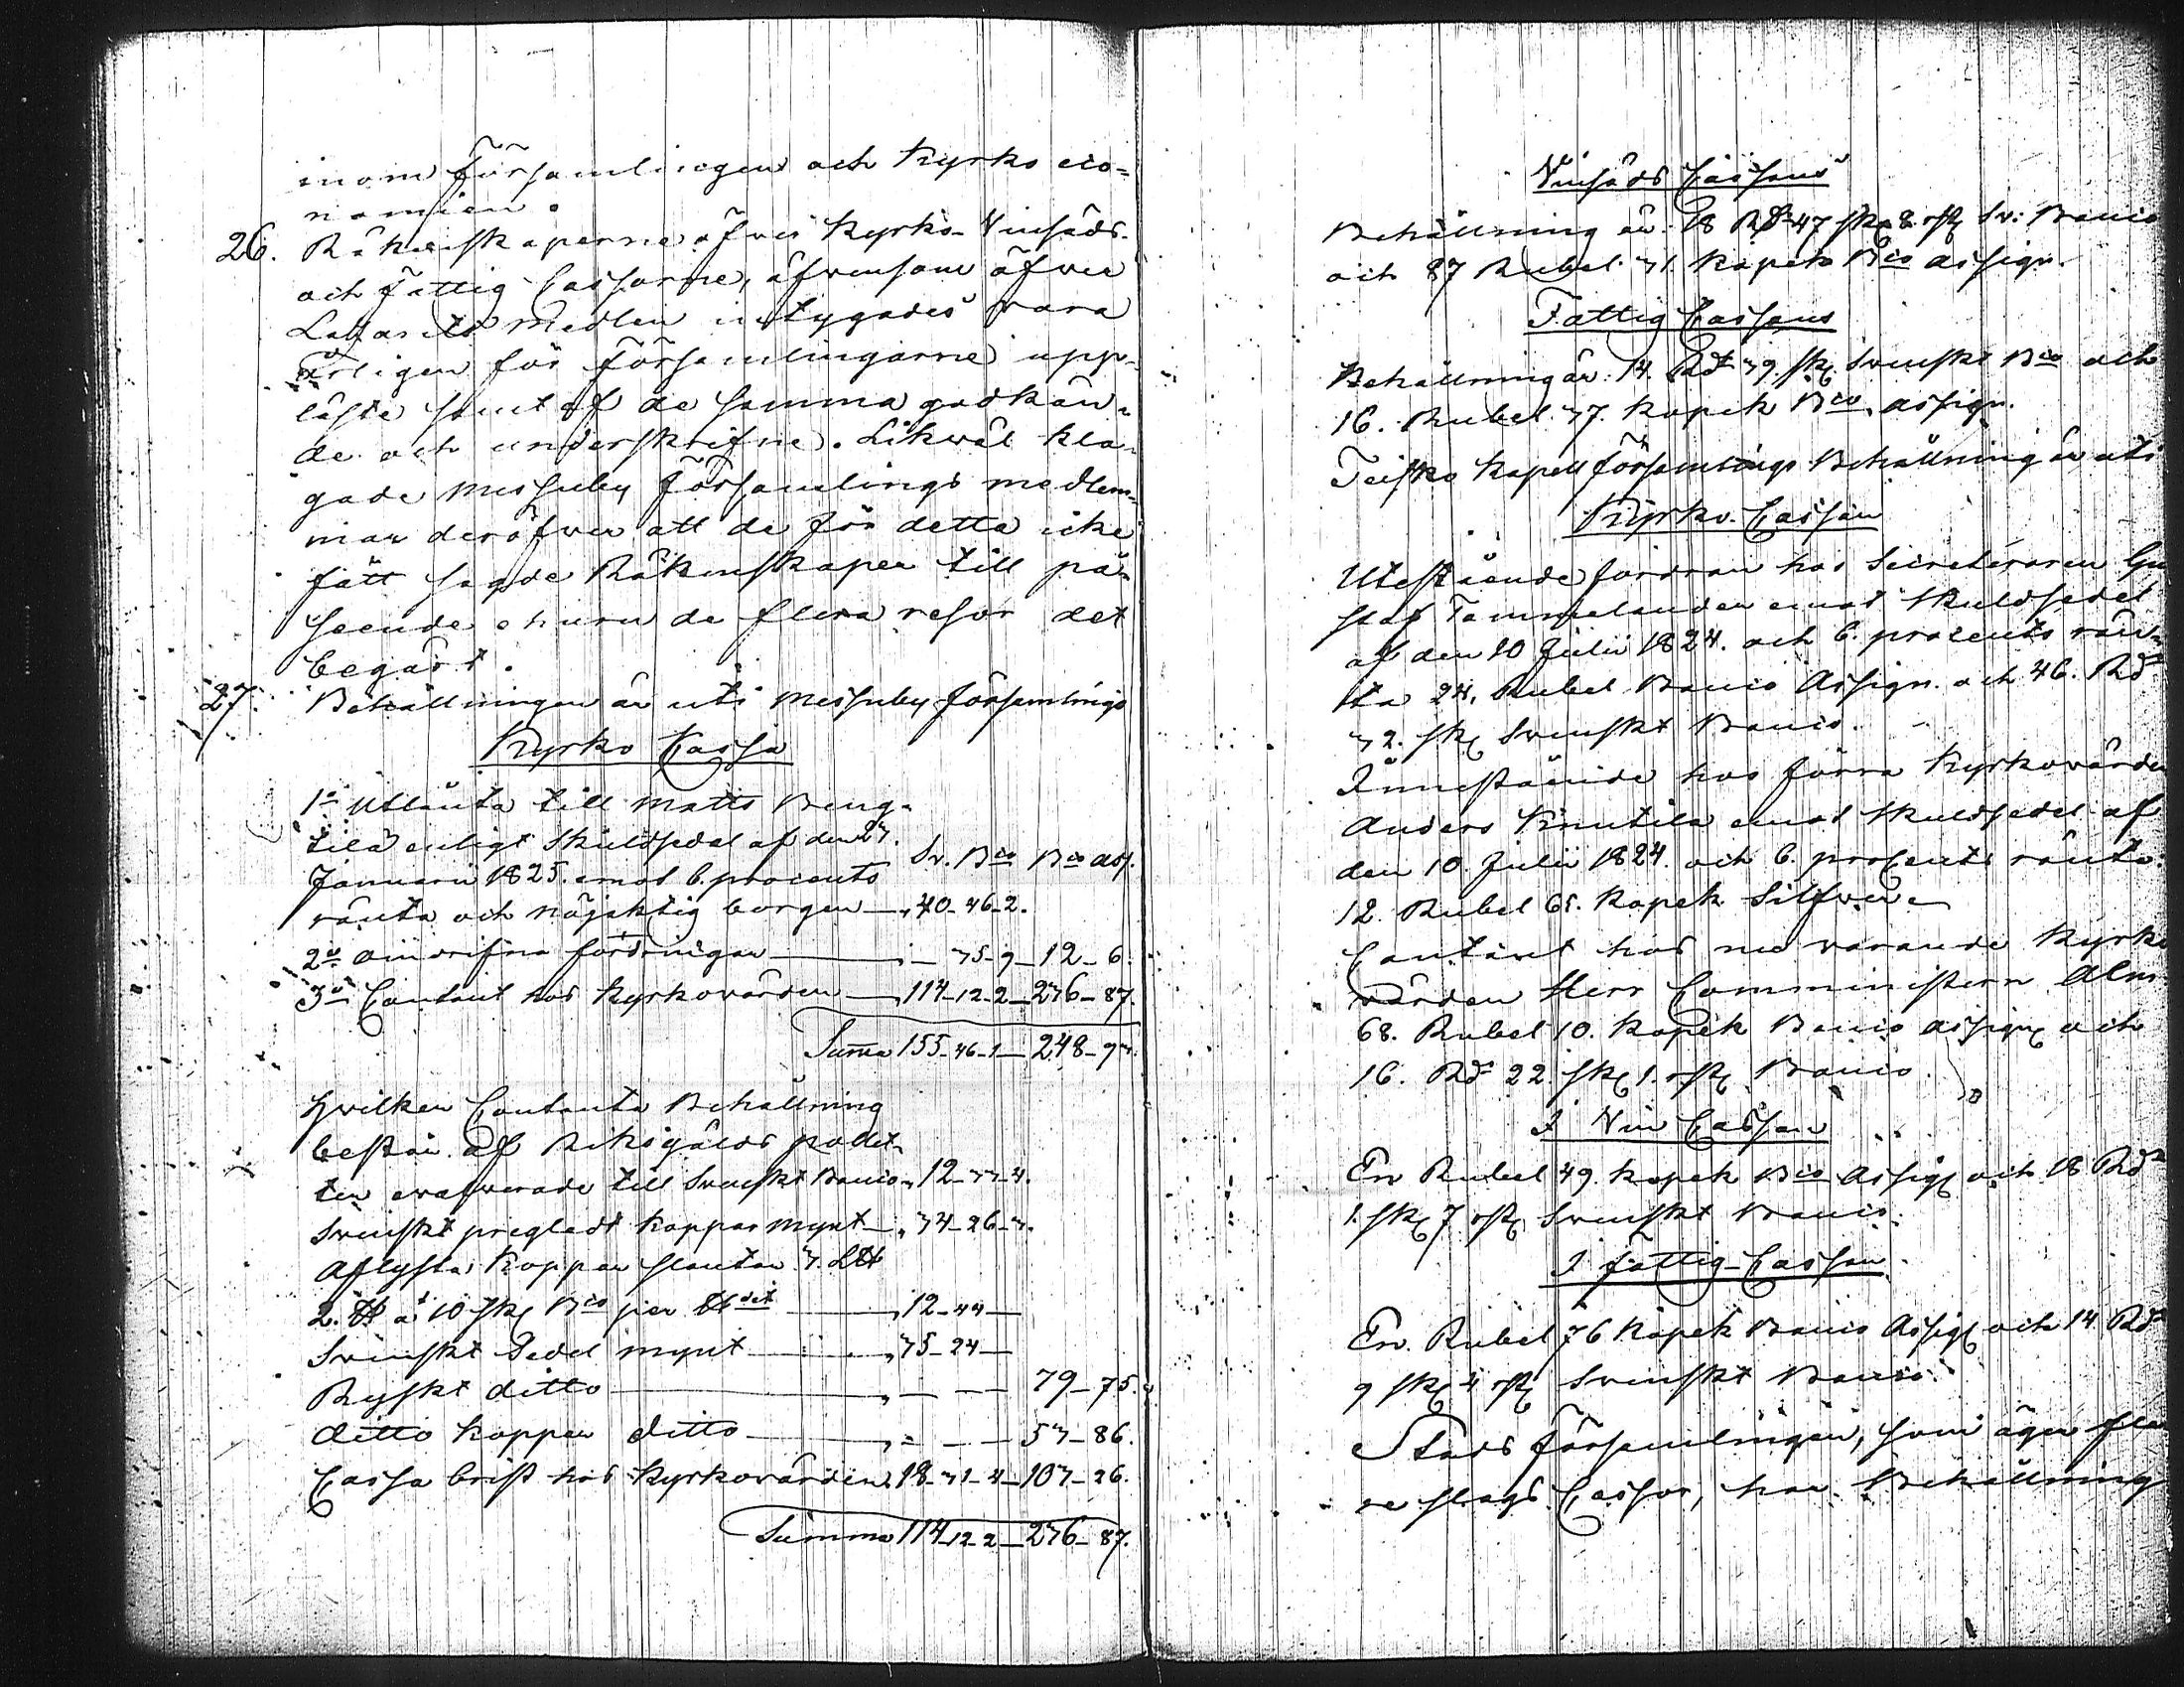 inom församlingen och kyrko eco=
nomien.
26. Räkenskaperne öfver Kyrko- Vinsäds-
och Fattig Cassorne, äfvensom öfver
Lazaretts medlen intygades vara
årligen för Församlingarne upp-
läste samt af de samma godkän-
de och underskrifne. Likväl kla-
gade Messuby Församlings medlem-
mar deröfver att de för detta icke
fått sagde Räkenskaper till på-
seende ehuru de flera resor det
begärt.
27. Behållningen är uti Messuby församlings
Kyrko Cassa
1o Utlånta till Matts Beng-
tilä enligt skuldsedel af den 27.
Januarii 1825. emot 6. procents Sv. Bco Bco ass.
ränta och nöjaktig borgen 40-46-2.
2o oindrifna fordringar 9-12-6.
3o Contant hos Kyrkovärden 114-12-2-236-87.
Summa 155-46-1-248-93.
Hvilken Contanta Behållning
består af Riksgälds pollet-
ter evalverade till Svenskt Banco 12-33-4.
Svenskt pregladt koppar mynt 34-26-3.
Aflysta Koppar slantar 3. L℔
2. ℔ à 10 sk Bco per ℔det 12-44
Svenskt Sedel mynt 35-24
Ryskt ditto 79-75.
ditto koppar ditto 53-86.
Cassa brist hos Kyrkovärden 18-31-4-103-26.
Summa 114-12-2-236-87.
Vinsäds Cassans
Behållning är 18 Rd 47 sk 8 rst Sv: Banco
och 87 Rubel 31. kopek Bco assign.
Fattig Cassans
Behållning är 14. Rd 39 sk Svenskt Bco och
16. Rubel 37. kopek Bco assign.
Teisko Kapell församlings Behållning är uti
Kyrko-Cassan
Utestående fordran hos Secreteraren Gu
staf Tammelander emot skuldsedel
af den 10 Julii 1824. och 6. procents rän-
ta 24. Rubel Banco Assign. och 46. Rd
32. sk Svenskt Banco.
Innestående hos förra Kyrkovärden
Anders Knutila emot skuldsedel af
den 10. Julii 1824. och 6. procents ränta
12. Rubel 65. kopek Silfver
Contant hos nu varande Kyrko
värden Herr Comministern Alm
68. Rubel 10. kopek Banco assign och
16. Rd 22. sk 1. rst Banco.
I Vin Cassan
En Rubel 49. kopek Bco Assig och 18 Rd
1. sk 7 rst Svenskt Banco.
I fattig-Cassan
En Rubel 76 kopek Banco Assig och 14 Rd
9 sk 4 rst Svenskt Banco.
Stads församlingen, som äger fle
re slags Cassor, har Behållning